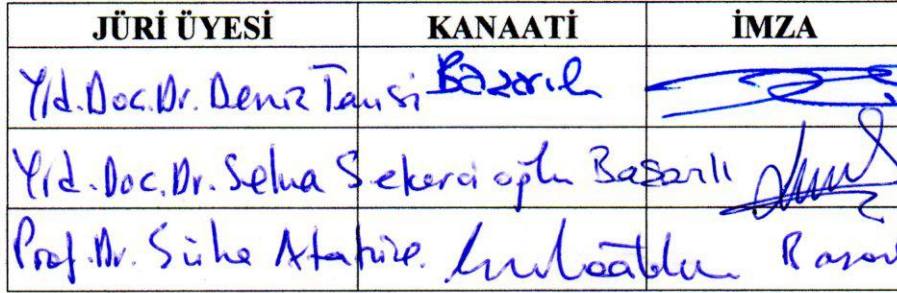 JÜRİ ÜYESİ KANAATİ İMZA
Yrd.Doc.Dr. Deniz Tansi Başarılı
Yrd.Doc.Dr. Selma Sekercioglu Başarılı
Prof.Dr. Süha Atatüre.